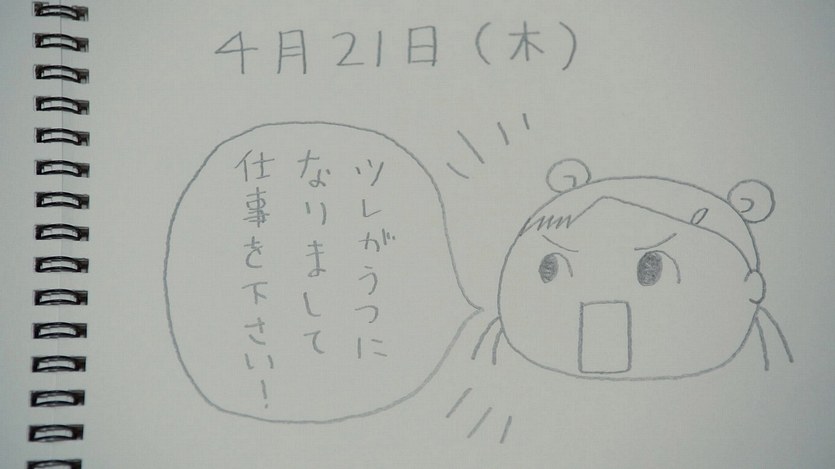 4月21日（木）
ツレがうつに
なりまして
仕事を下さい！